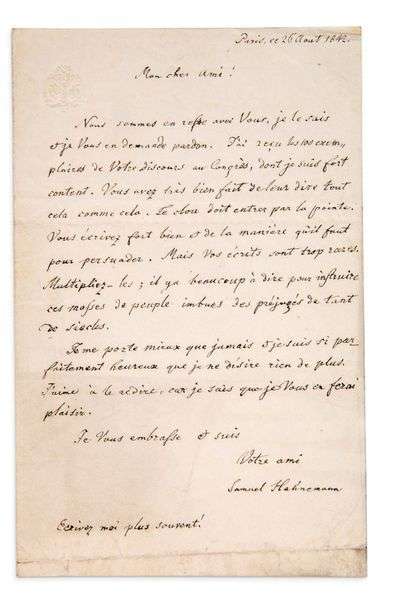 Paris, ce 26 Aout 1842.
Mon cher ami!
Nous sommes en reste avec Vous, je le sais
et je Vous en demande pardon. J'ai reçu les 100 exem-
plaires de Votre discours au Congrès, dont je suis fort
content. Vous avez très bien fait de leur dire tout
cela comme cela. Le clou doit entrer par la pointe.
Vous écrivez fort bien et de la manière qu'il faut
pour persuader. Mais Vos écrits sont trop rares.
Multipliez-les; il ya beaucoup à dire pour instruire
ces masses de peuple imbues des préjugés de tant
de siècles.
Je me porte mieux que jamais et je suis si par-
faitement heureux que je ne désire rien de plus.
J'aime à le redire, car je sais que je Vous en ferai
plaisir.
Je Vous embrasse et suis
Votre ami
Samuel Hahnemann
Ecrivez moi plus souvent!